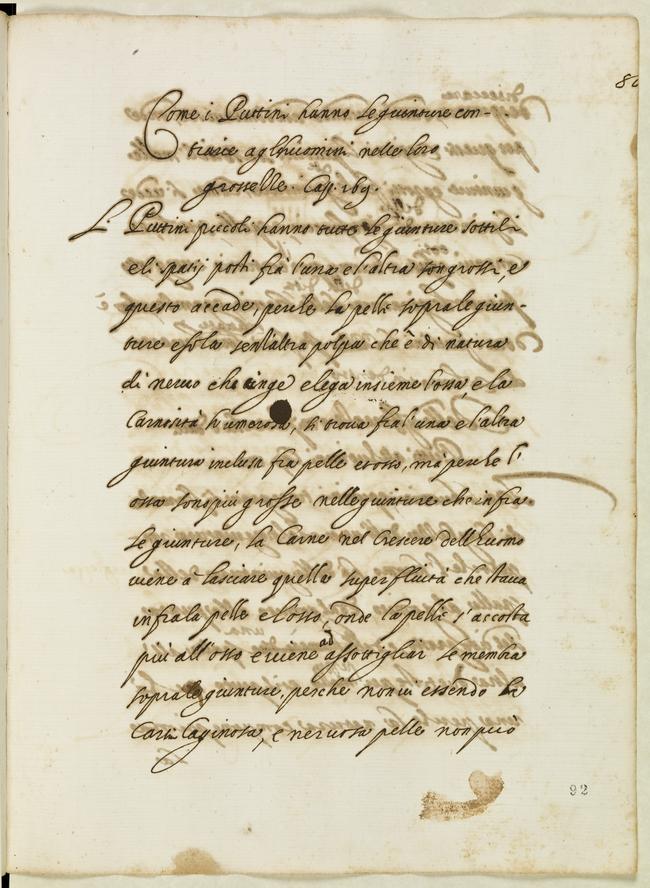 80
Come i Puttini hanno le giunture con-
trarie agli huomini nelle loro
grosselle. Cap. 169.
Li Puttini piccoli hanno tutte le giunture sottili
e li spatij posti fra l'una e l'altra son grossi, e
questo accade, perche la pelle sopra le giun-
ture e sola senz'altra polpa che è di natura
di neruo che cinge e lega insieme l'ossa, e la
Carnosità humorosa, si troua fra l'una e l'altra
giuntura inclusa fra pelle et osso, mà perche l'
ossa sono più grosse nelle giunture che infra
le giunture, la Carne nel Crescere dell'Huomo
uiene a lasciare quella superfluità che staua
infra la pelle e l'osso, onde la pelle s'accosta
più all'osso e uiene ad assottigliar le membra
sopra le giunture, perche non ui essendo la
Cartilaginosa, e neruosa pelle non può
92